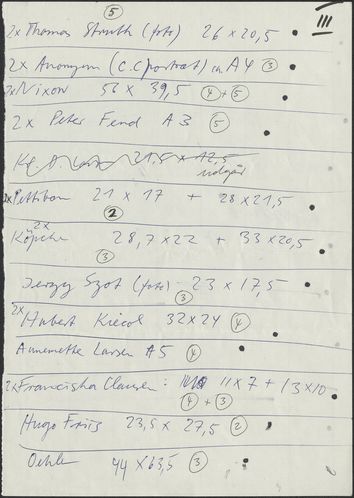 5
III
2x Thomas Struth (foto) 26 x 20,5
2x Anonym (C.C portræt) ca A4 3
2x Nixon 56 x 39,5 4 + 5
2x Peter Fend A3 5
21,5 x 12,5
udgår
2x Pettibon 21 x 17 + 28 x 21,5
2
2x
Köpcke 28,7 x 22 + 33 x 20,5
3
Jerzy Szot (foto) 23 x 17,5
3
2x
Hubert Kiecol 32 x 24 4
Annemette Larsen A5 4
2x Franciska Clausen: 11 x 7 + 13 x 10
4 + 3
Hugo Friis 23,5 x 27,5 2
Oehlen 44 x 63,5 3